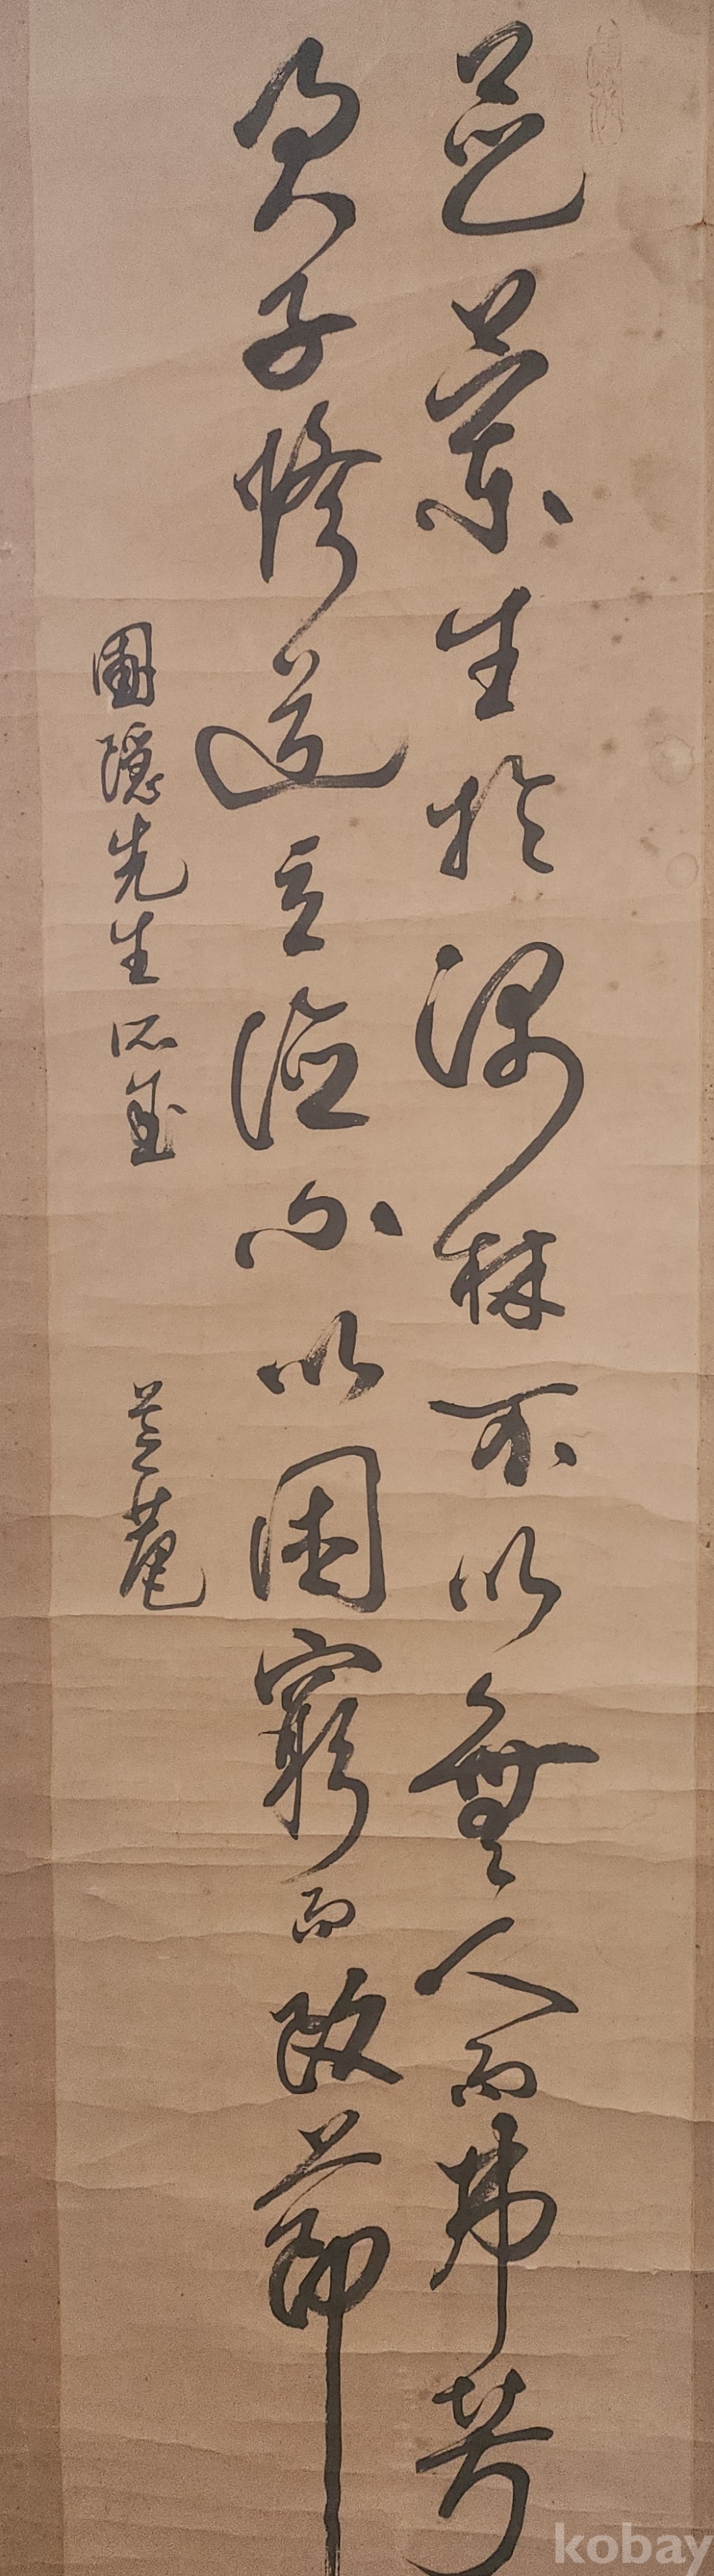 芝蘭生於深林不以無人而弗芳
君子修道立德不以困窮而改節
隱先生
芝菴
kobay